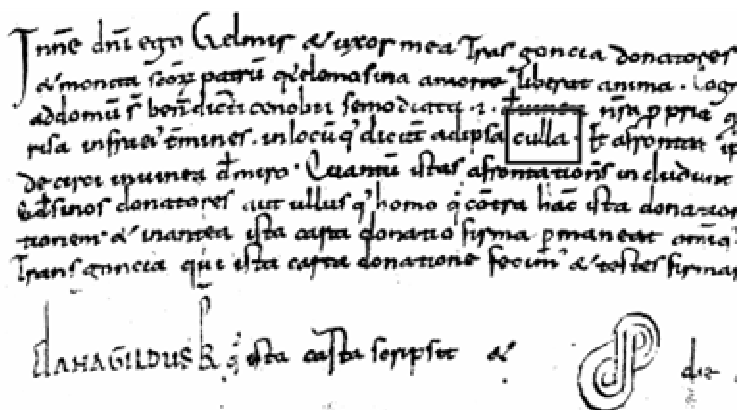 In nñe dñi ego Gelmir & uxor mea Trasgoncia donatores
& moncta scõr patrũ q'elemosina a morte liberat anima
ad domũ s̃ beñdicti cenobii semodiata .i. de vinea nr̃a ppria
infra ei' t̃mines . in locũ q' dicũt ad ipsa culla . Et afrontat
de ciroi in vinea d̃ miro . Quantũ istas afrontationes includunt
donatores aut ullus q' homo q̃ cõtra hãc ista donacion
tionem & in antea ista carta donatio firma p maneat omiq
Transgoncia qui ista carta donatione fecim' & testes firmar
DANAGILDUS ista carta scripsit & die